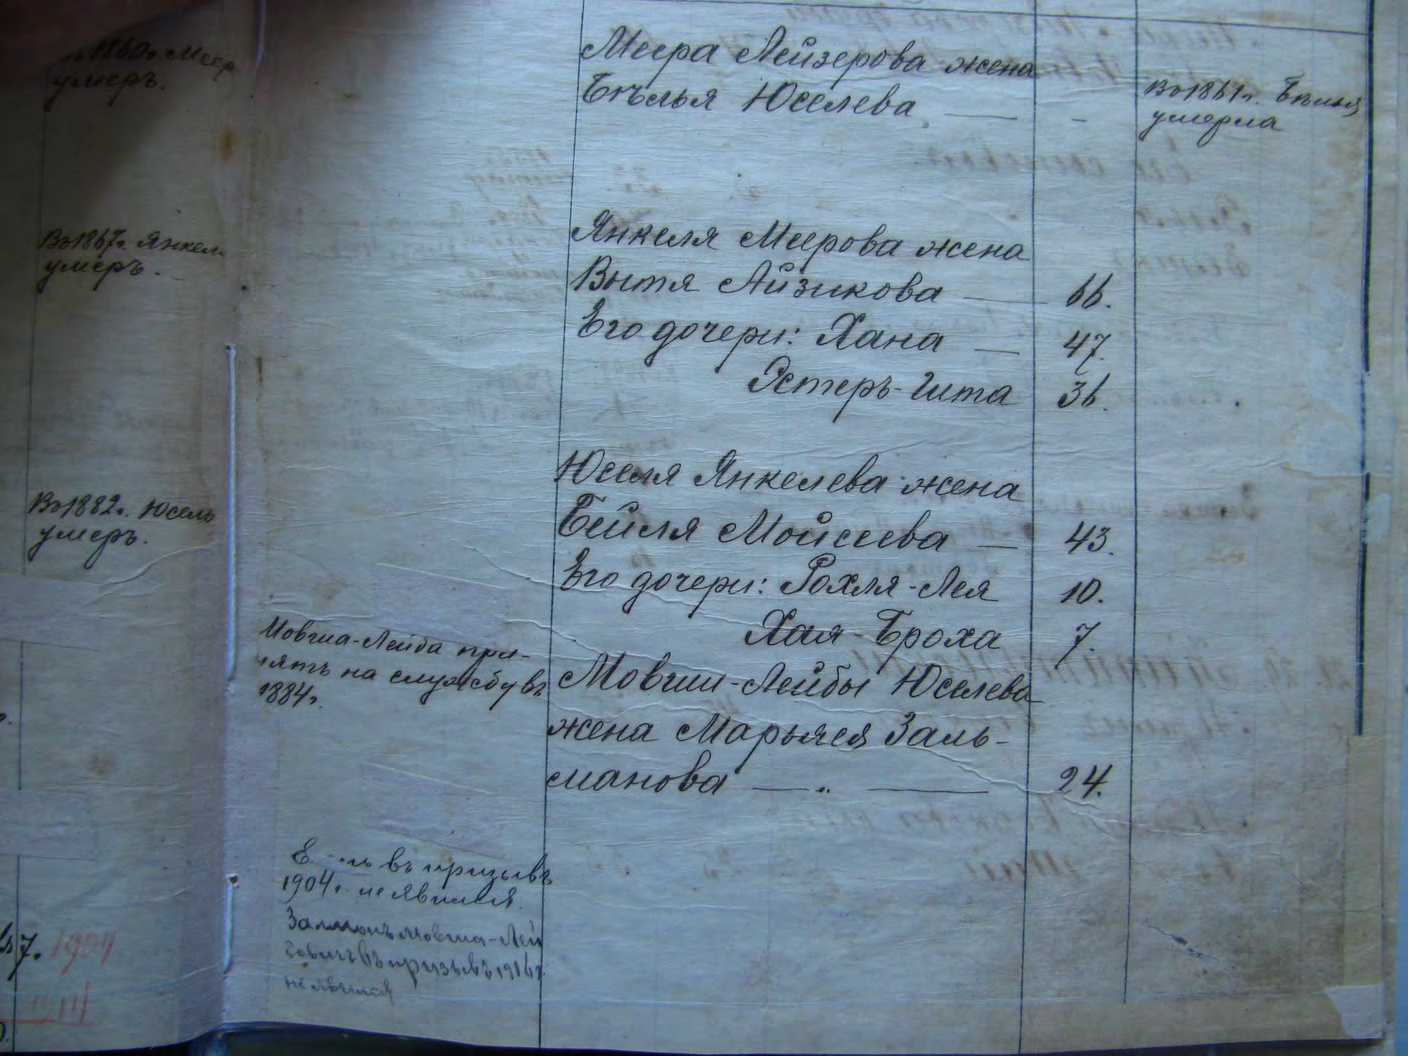 въ 1860г. Меер
умеръ.
Въ 1867г. Янкель
умеръ.
Въ 1882г. Юсель
умеръ.
7. 1904
Мовша-Лейба при-
нятъ на службу въ
1884г.
въ призывъ
1904г. не явился.
Залмонъ Мовша-Лей
бовичъ въ призывъ 1916г.
не явился
Меера Лейзерова жена
Бѣлья Юселева — -
Янкеля Меерова жена
Вытя Айзикова — 66.
Его дочери: Хана — 47.
Эстеръ-Гита 36.
Юселя Янкелева жена
Бейля Мойсеева — 43.
Его дочери: Рохля-Лея 10.
Хая-Броха 7.
Мовши-Лейбы Юселева
жена Марьяся Заль-
манова — „ — 24.
Въ 1861г. Бѣлья
умерла